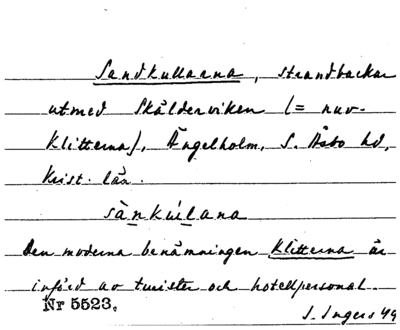 Sandkullarna, strandbackar
utmed Skälderviken (= nuv.
Klitterna), Ängelholm, S. Åsbo hd,
Krist. län.
sànkulana
Den moderna benämningen Klitterna är
införd av turister och hotellpersonal.
Nr 5523.
J. Ingers 49